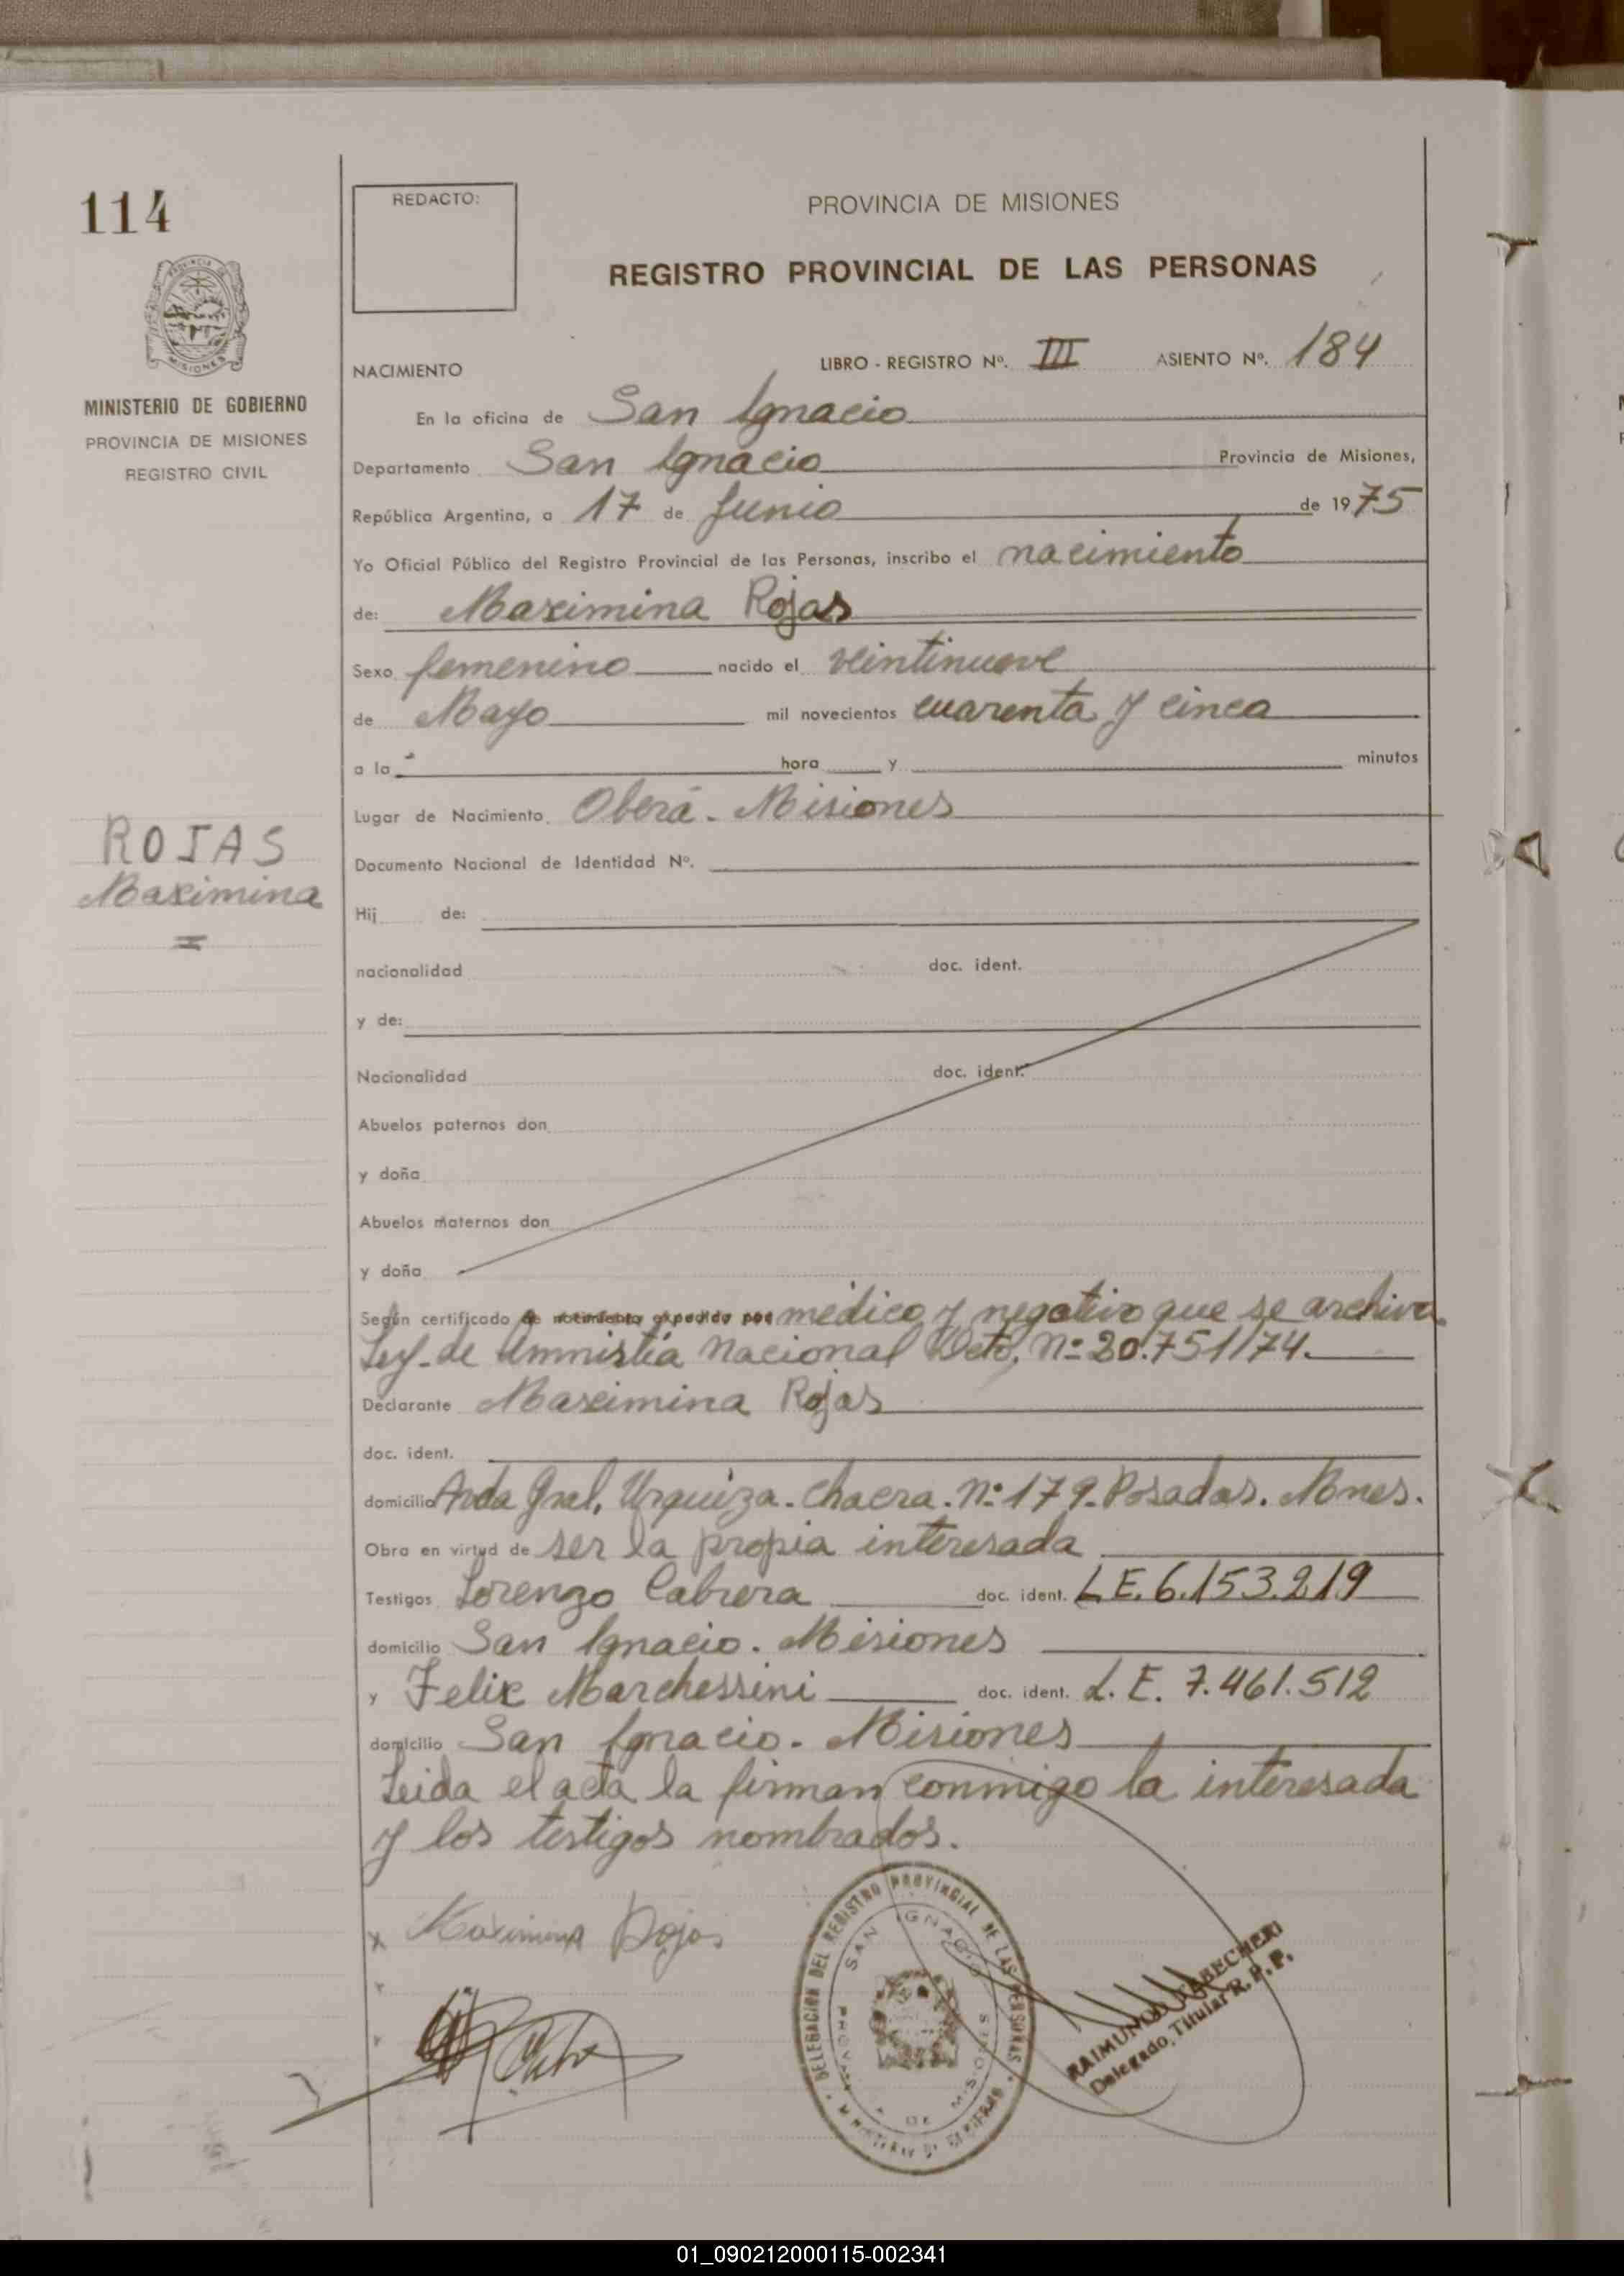 114
REDACTO:
PROVINCIA DE MISIONES
REGISTRO PROVINCIAL DE LAS PERSONAS
PROVINCIA DE
MISIONES
MINISTERIO DE GOBIERNO
PROVINCIA DE MISIONES
REGISTRO CIVIL
NACIMIENTO LIBRO - REGISTRO Nº. III ASIENTO Nº. 184
En la oficina de San Ignacio
Departamento San Ignacio Provincia de Misiones,
República Argentina, a 17 de Junio de 1975
Yo Oficial Público del Registro Provincial de las Personas, inscribo el nacimiento
de: Maximina Rojas
Sexo femenino nacido el veintinueve
de Mayo mil novecientos cuarenta y cinco
a la hora y minutos
Lugar de Nacimiento Oberá - Misiones
ROJAS
Maximina
Documento Nacional de Identidad Nº.
Hij de:
nacionalidad doc. ident.
y de:
Nacionalidad doc. ident.
Abuelos paternos don
y doña
Abuelos maternos don
y doña
Según certificado de nacimiento expedido por médico y negativo que se archiva.
Ley de Amnistía Nacional Dcto, Nº 20.751/74.
Declarante Maximina Rojas
doc. ident.
domicilio Avda Gral. Urquiza. Chacra. Nº 179. Posadas. Mnes.
Obra en virtud de ser la propia interesada
Testigos Lorenzo Cabrera doc. ident. L.E. 6.153.219
domicilio San Ignacio. Misiones
y Felix Marchessini doc. ident. L.E. 7.461.512
domicilio San Ignacio. Misiones
Leida el acta la firman conmigo la interesada
y los testigos nombrados.
x Maximina Rojas
DELEGACION DEL REGISTRO PROVINCIAL DE LAS PERSONAS
SAN IGNACIO
DE MISIONES
MINISTERIO DE GOBIERNO
RAIMUNDO
Delegado Titular R. P. P.
01_090212000115-002341